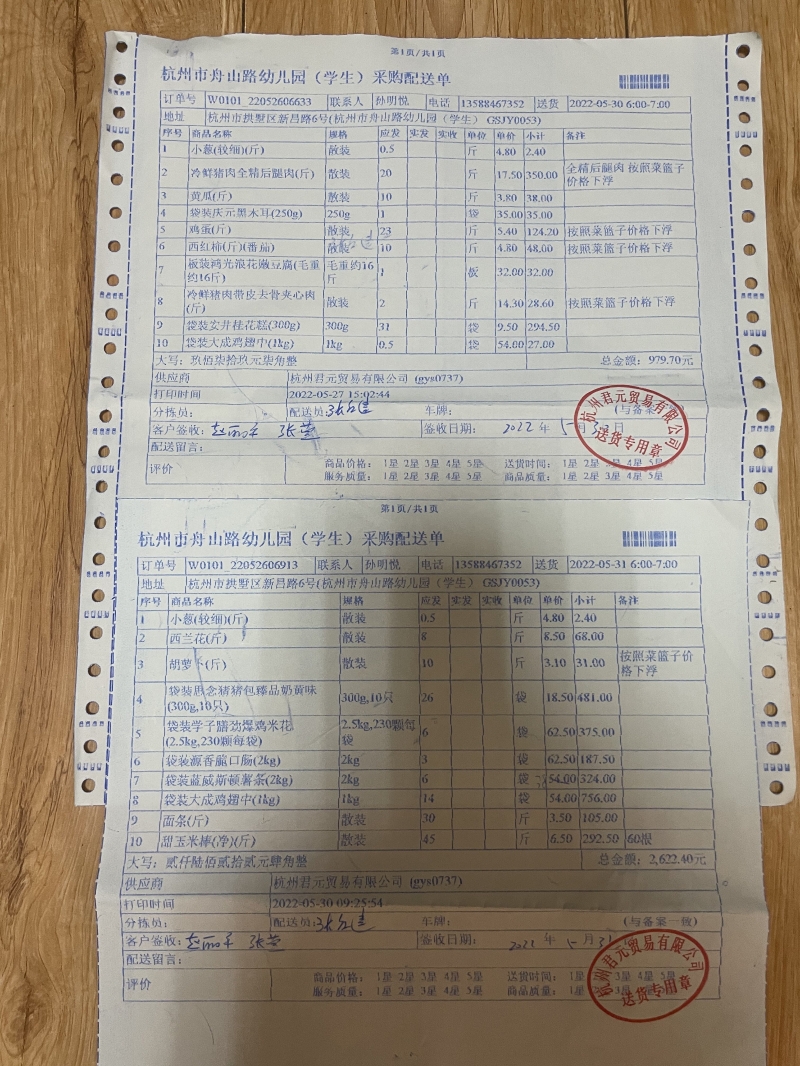 第1页/共1页
杭州市舟山路幼儿园（学生）采购配送单
订单号 W0101_22052606633 联系人 孙明悦 电话 13588467352 送货 2022-05-30 6:00-7:00
地址 杭州市拱墅区新昌路6号(杭州市舟山路幼儿园（学生） GSJY0053)
序号 商品名称 规格 应发 实发 实收 单位 单价 小计 备注
1 小葱(较细)(斤) 散装 0.5 斤 4.80 2.40
2 冷鲜猪肉全精后腿肉(斤) 散装 20 斤 17.50 350.00 全精后腿肉 按照菜篮子
价格下浮
3 黄瓜(斤) 散装 10 斤 3.80 38.00
4 袋装庆元黑木耳(250g) 250g 1 袋 35.00 35.00
5 鸡蛋(斤) 散装 23 斤 5.40 124.20 按照菜篮子价格下浮
6 西红柿(斤)(番茄) 散装 10 斤 4.80 48.00 按照菜篮子价格下浮
7 板装鸿光浪花嫩豆腐(毛重 毛重约16 1 板 32.00 32.00
约16斤) 斤
8 冷鲜猪肉带皮去骨夹心肉 散装 2 斤 14.30 28.60 按照菜篮子价格下浮
(斤)
9 袋装安井桂花糕(300g) 300g 31 袋 9.50 294.50
10 袋装大成鸡翅中(1kg) 1kg 0.5 袋 54.00 27.00
大写：玖佰柒拾玖元柒角整 总金额：979.70元
供应商 杭州君元贸易有限公司 (gys0737)
打印时间 2022-05-27 15:02:44
分拣员： 配送员: 车牌： (与备案
客户签收： 签收日期： 2022 年 5 月
配送留言：
评价 商品价格： 1星 2星 3星 4星 5星 送货时间： 1星 2星 3星 4星 5星
服务质量： 1星 2星 3星 4星 5星 商品质量： 1星 2星 3星 4星 5星
杭州君元贸易有限公司
送货专用章
第1页/共1页
杭州市舟山路幼儿园（学生）采购配送单
订单号 W0101_22052606913 联系人 孙明悦 电话 13588467352 送货 2022-05-31 6:00-7:00
地址 杭州市拱墅区新昌路6号(杭州市舟山路幼儿园（学生） GSJY0053)
序号 商品名称 规格 应发 实发 实收 单位 单价 小计 备注
1 小葱(较细)(斤) 散装 0.5 斤 4.80 2.40
2 西兰花(斤) 散装 8 斤 8.50 68.00
3 胡萝卜(斤) 散装 10 斤 3.10 31.00 按照菜篮子价
格下浮
4 袋装思念猪猪包臻品奶黄味 300g,10只 26 袋 18.50 481.00
(300g,10只)
5 袋装学子膳劲爆鸡米花 2.5kg,230颗每 6 袋 62.50 375.00
(2.5kg,230颗每袋) 袋
6 袋装源香脆口肠(2kg) 2kg 3 袋 62.50 187.50
7 袋装蓝威斯顿薯条(2kg) 2kg 6 袋 54.00 324.00
8 袋装大成鸡翅中(1kg) 1kg 14 袋 54.00 756.00
9 面条(斤) 散装 30 斤 3.50 105.00
10 甜玉米棒(净)(斤) 散装 45 斤 6.50 292.50 60根
大写：贰仟陆佰贰拾贰元肆角整 总金额：2,622.40元
供应商 杭州君元贸易有限公司 (gys0737)
打印时间 2022-05-30 09:25:54
分拣员： 配送员: 车牌： (与备案一致)
客户签收： 签收日期： 2022 年 5 月 31
配送留言：
评价 商品价格： 1星 2星 3星 4星 5星 送货时间： 1星 2星 3星 4星 5星
服务质量： 1星 2星 3星 4星 5星 商品质量： 1星
杭州君元贸易有限公司
送货专用章